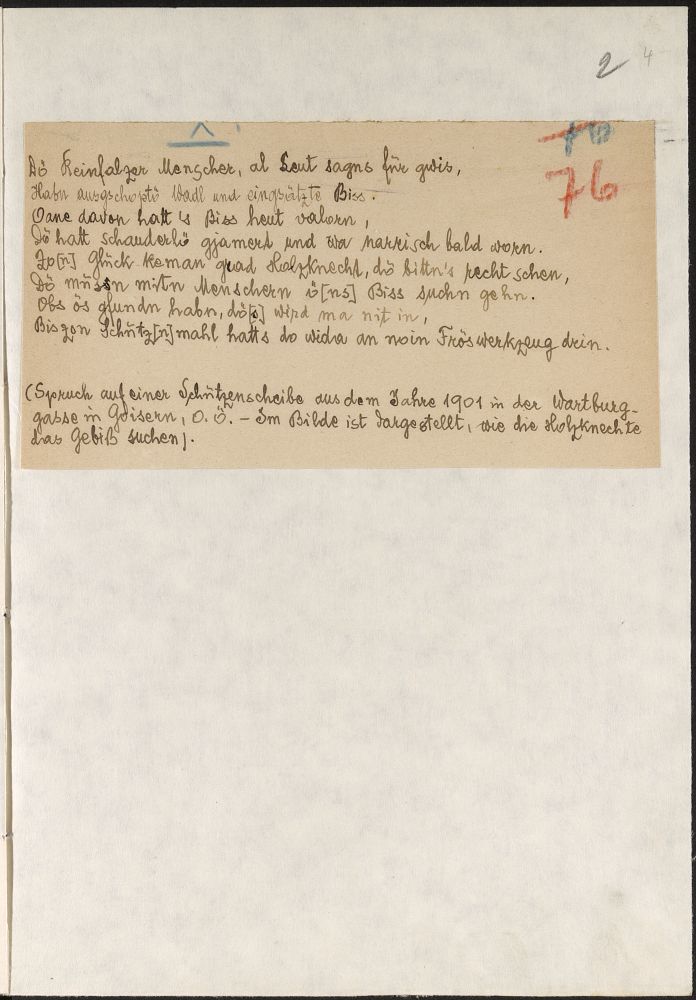 2 4
76
76
Dö Reinfalzer Menscher, al Leut sagns für gwis,
Habn ausgschoptö Wadl und eingsätzte Biss.
Oane davon hatt 's Biss heut valorn,
Dö hatt schauderlö gjamert und wa narrisch bald worn.
Zo[n] Glück keman grad Holzknecht, dö bittn's recht schen,
Dö müssn mitn Menschern ö[ns] Biss suchn gehn.
Obs ös gfundn habn, dö[s] wird ma nit in,
Bis zon Schütz[n]mahl hatts do wida an noin Fröswerkzeug drin.
(Spruch auf einer Schützenscheibe aus dem Jahre 1901 in der Wartburg-
gasse in Goisern, O.Ö. – Im Bilde ist dargestellt, wie die Holzknechte
das Gebiß suchen).